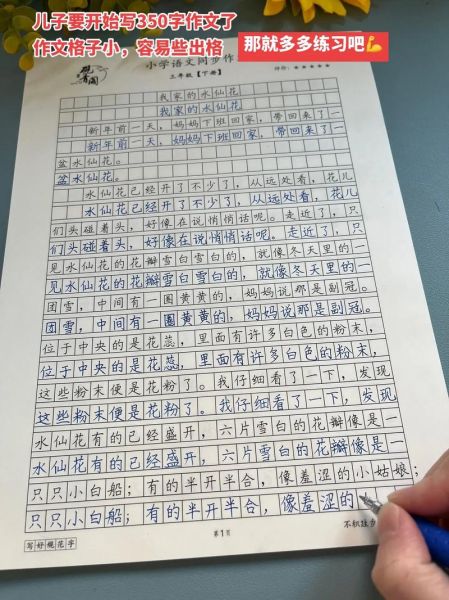 儿子要开始写350字作文了
作文格子小，容易些出格
那就多多练习吧💪
砚青阁
小学语文同步作
三年级【下册】
评价：★★★★★
我家的水仙花
我家的水仙花
新年前一天，妈妈下班回家，带回来了一
新年前一天，妈妈下班回家，带回来了一
盆水仙花。
盆水仙花。
水仙花已经开了不少了，从远处看，花儿
水仙花已经开了不少了，从远处看，花儿
们头碰着头，好像在说悄悄话呢。走近了，只
们头碰着头，好像在说悄悄话呢。走近了，只
见水仙花的花瓣雪白雪白的，就像冬天里的一
见水仙花的花瓣雪白雪白的，就像冬天里的一
团雪，中间有一圈黄黄的，妈妈说那是副冠。
团雪，中间有一圈黄黄的，妈妈说那是副冠。
位于中央的是花蕊，里面有许多白色的粉末，
位于中央的是花蕊，里面有许多白色的粉末，
这些粉末便是花粉了。我仔细看了一下，发现
这些粉末便是花粉了。我仔细看了一下，发现
水仙花有的已经盛开，六片雪白的花瓣像是一
水仙花有的已经盛开，六片雪白的花瓣像是一
只只小白船；有的半开半合，像羞涩的小姑娘；
只只小白船；有的半开半合，像羞涩的
写好规范字
第1页